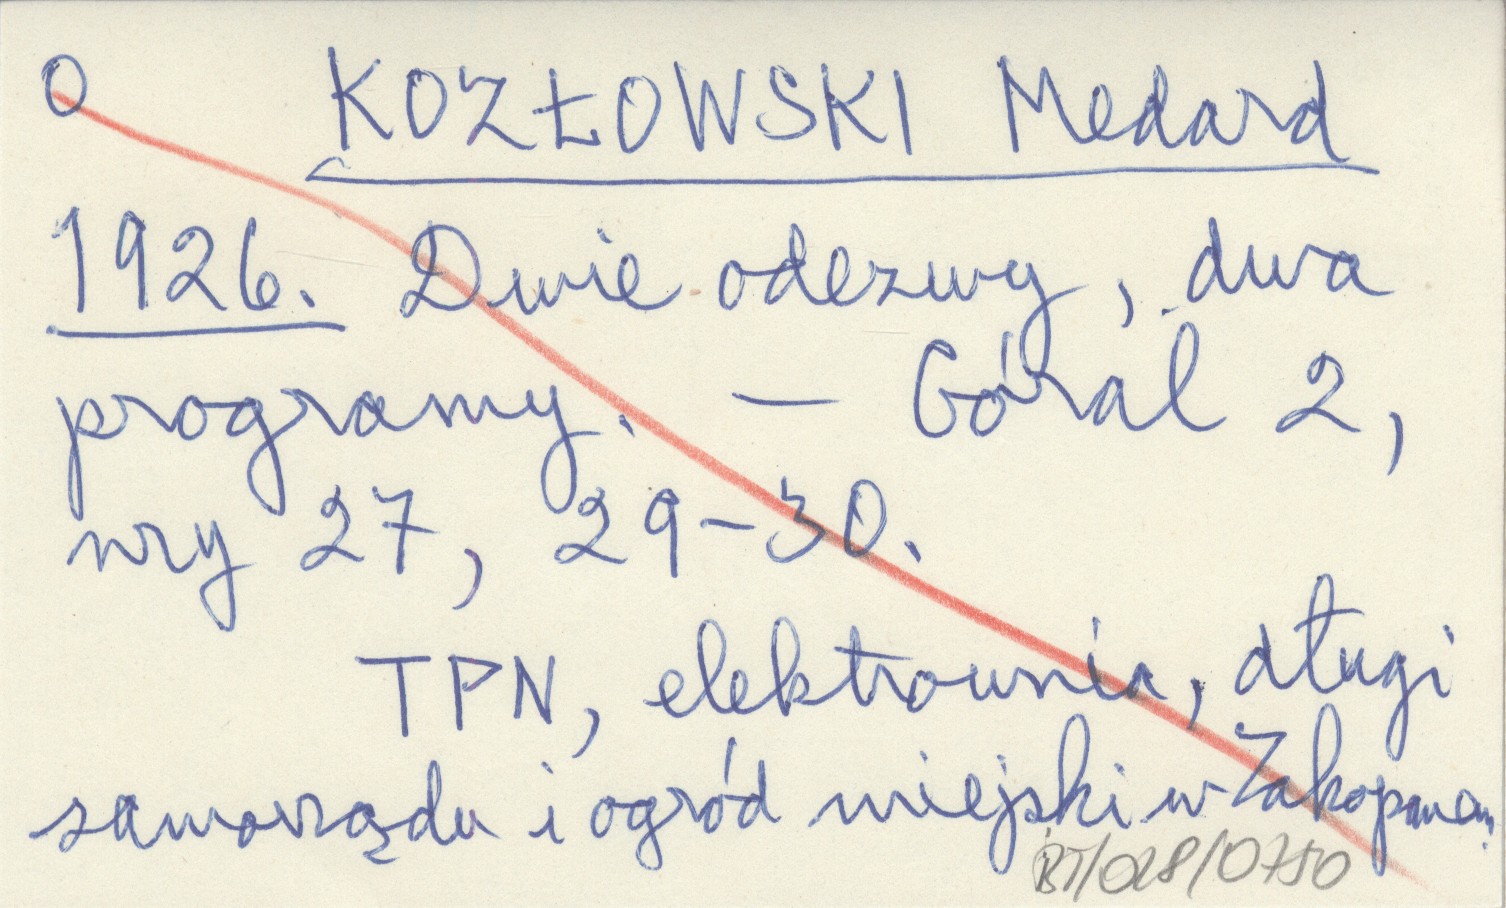 O KOZŁOWSKI Medard
1926. Dwie odezwy, dwa
programy. – Góral 2,
nry 27, 29-30.
TPN, elektrownia, długi
samorządu i ogród miejski w Zakopanem.
BT/028/0750